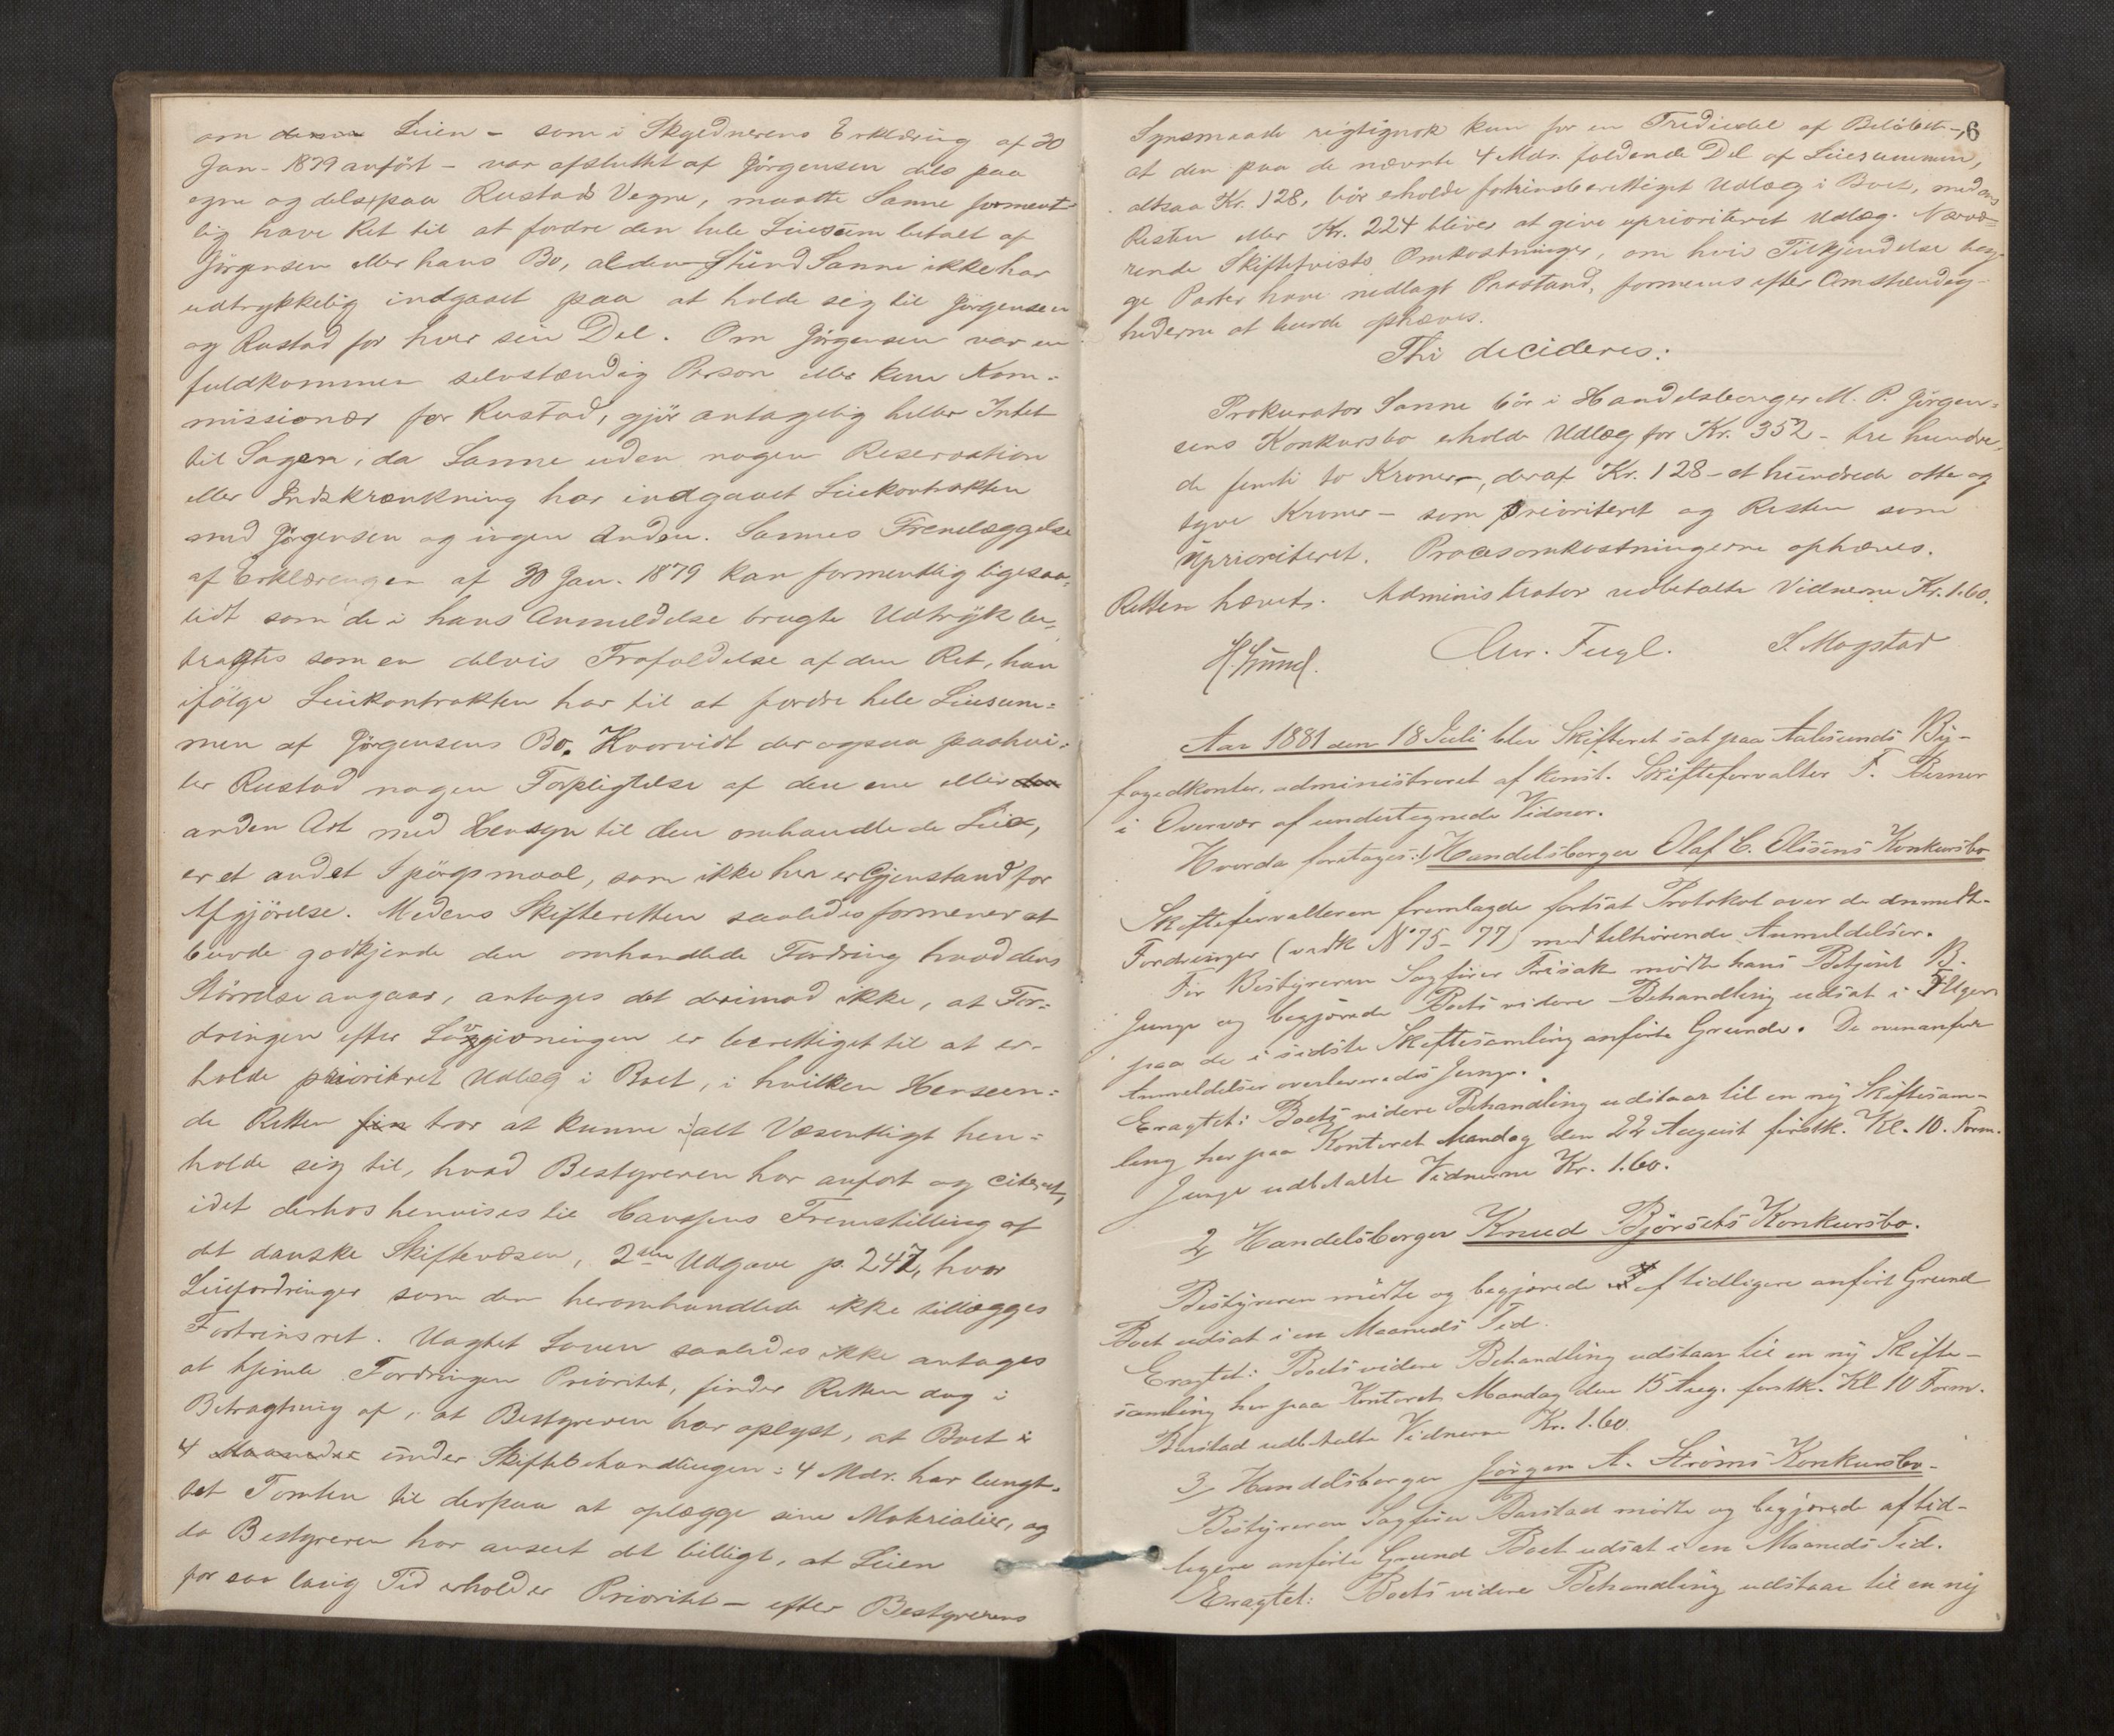 om denne Leien - som i Skyldnerens Erklæring af 30
Jan. 1879 anført - var afsluttet af Jørgensen dels paa
egne og dels paa Rustads Vegne, maatte Sanne forment-
lig have Ret til at fordre den hele Leiesum betalt af
Jørgensen eller hans Bo, al den Stund Sanne ikke har
udtrykkelig indgaaet paa at holde sig til Jørgensen
og Rustad for hver sin Del. Om Jørgensen var en
fuldkommen selvstændig Person eller kun Kom-
missionær for Rustad, gjør antagelig heller Intet
til Sagen, da Sanne uden nogen Reservation
eller Indskrænkning har indgaaet Leiekontrakten
med Jørgensen og ingen Anden. Sannes Fremlæggelse
af Erklæringen af 30 Jan. 1879 kan formentlig ligesaa-
lidt som de i hans Anmeldelse brugte Udtryk be-
tragtes som en delvis Frafaldelse af den Ret, han
ifølge Leiekontrakten har til at fordre hele Leiesum-
men af Jørgensens Bo. Hvorvidt der ogsaa paahvi-
ler Rustad nogen Forpligtelse af den ene eller den
anden Art med Hensyn til den omhandlede Leie,
er et andet Spørgsmaal, som ikke her er Gjenstand for
Afgjørelse. Medens Skifteretten saaledes formener at
burde godkjende den omhandlede Fordring hvad dens
Størrelse angaar, antages det derimod ikke, at For-
dringen efter Lovgivningen er berettiget til at er-
holde prioriteret Udlæg i Boet, i hvilken Henseen-
de Retten tror at kunne i alt Væsentligt hen-
holde sig til, hvad Bestyreren har anført og citeret,
idet derhos henvises til Hansens Fremstilling af
det danske Skiftevæsen, 2den Udgave p. 247, hvor
Leiefordringer som den heromhandlede ikke tillægges
Fortrinsret. Uagtet Loven saaledes ikke antages
at hjemle Fordringen Prioritet, finder Retten dog i
Betragtning af, at Bestyreren har oplyst, at Boet i
4 Maaneder under Skiftebehandlingen i 4 Mdr. har benyt-
tet Tomten til derpaa at oplægge sine Materialier, og
da Bestyreren har anseet det billigt, at Leien
for saa lang Tid erholder Prioritet - efter Bestyrerens
6
Synsmaade rigtignok kun for en Trediedel af Beløbet -,
at den paa de nævnte 4 Mdr. faldende Del af Leiesummen,
altsaa Kr. 128, bør erholde fortrinsberettiget Udlæg i Boet, medens
Resten eller Kr. 224 bliver at give uprioriteret Udlæg. Nærvæ-
rende Skiftetvists Omkostninger, om hvis Tilkjendelse beg-
ge Parter have nedlagt Paastand, formenes efter Omstændig-
hederne at burde ophæves.
Thi decideres:
Prokurator Sanne bør i Handelsborger M. P. Jørgen-
sens Konkursbo erholde Udlæg for Kr. 352 - tre hundre-
de femti to Kroner -, deraf Kr. 128 - et hundrede otte og
tyve Kroner - som prioriteret og Resten som
uprioriteret. Procesomkostningerne ophæves.
Retten hævet. Administrator udbetalte Vidnerne Kr. 1.60.
Chr. Fugl. S. Mogstad
Aar 1881 den 18 Juli blev Skifteret sat paa Aalesunds By-
fogedkontor, administreret af konst. Skifteforvalter F. Berner
i Overvær af undertegnede Vidner.
Hvorda foretages: 1, Handelsborger Olaf C. Olsens Konkursbo
Skifteforvalteren fremlagde fortsat Protokol over de anmeldte
Fordringer (vedk No 75-77) med tilhørende Anmeldelser.
For Bestyreren Sagfører Frisak mødte hans Betjent B.
Junge og begjærede Boets videre Behandling udsat i 5 Uger
paa de i sidste Skiftesamling anførte Grunde. De ovenanførte
Anmeldelser overleveredes Junge.
Eragtet: Boets videre Behandling udstaar til en ny Skiftesam-
ling her paa Kontoret Mandag den 22 August førstk. Kl. 10. Form.
Junge udbetalte Vidnerne Kr. 1.60.
2, Handelsborger Knud Bjørsets Konkursbo.
Bestyreren mødte og begjærede af tidligere anført Grund
Boet udsat i en Maaneds Tid.
Eragtet: Boets videre Behandling udstaar til en ny Skifte-
samling her paa Kontoret Mandag den 15 Aug. førstk. Kl 10 Form.
Barstad udbetalte Vidnerne Kr. 1.60.
3, Handelsborger Jørgen A. Strøms Konkursbo.
Bestyreren Sagfører Barstad mødte og begjærede af tid-
ligere anførte Grund Boet udsat i en Maaneds Tid.
Eragtet: Boets videre Behandling udstaar til en ny